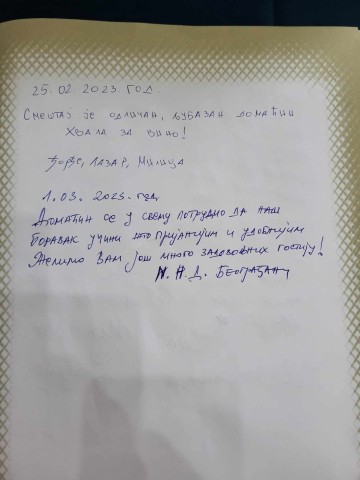 25.02.2023. ГОД.
Смештај је одличан, љубазан домаћин
Хвала за вино!
Ђорђе, Лазар, Милица
1.03.2023. год.
Домаћин се у свему потрудио да наш
боравак учини што пријатнијим и удобнијим
Желимо Вам још много задовољних гостију!
Н. Д. Београђани